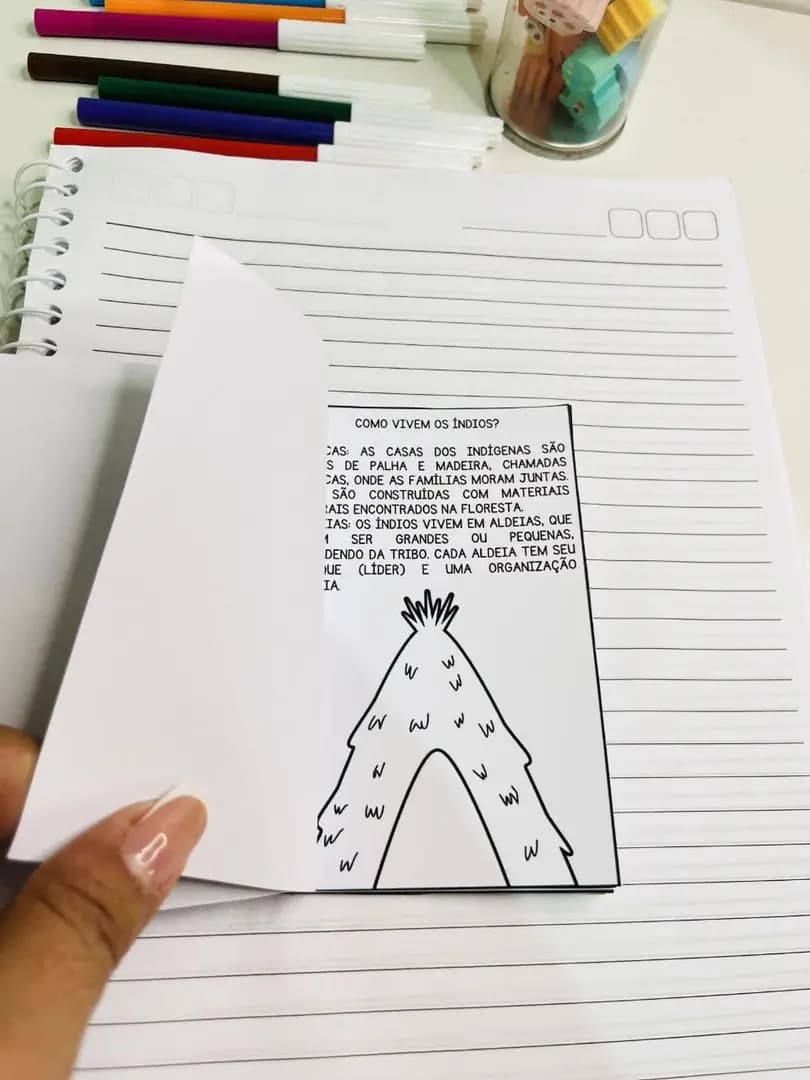 COMO VIVEM OS ÍNDIOS?
CAS: AS CASAS DOS INDÍGENAS SÃO
S DE PALHA E MADEIRA, CHAMADAS
CAS, ONDE AS FAMÍLIAS MORAM JUNTAS.
SÃO CONSTRUÍDAS COM MATERIAIS
AIS ENCONTRADOS NA FLORESTA.
IAS: OS ÍNDIOS VIVEM EM ALDEIAS, QUE
SER GRANDES OU PEQUENAS,
DENDO DA TRIBO. CADA ALDEIA TEM SEU
UE (LÍDER) E UMA ORGANIZAÇÃO
IA.